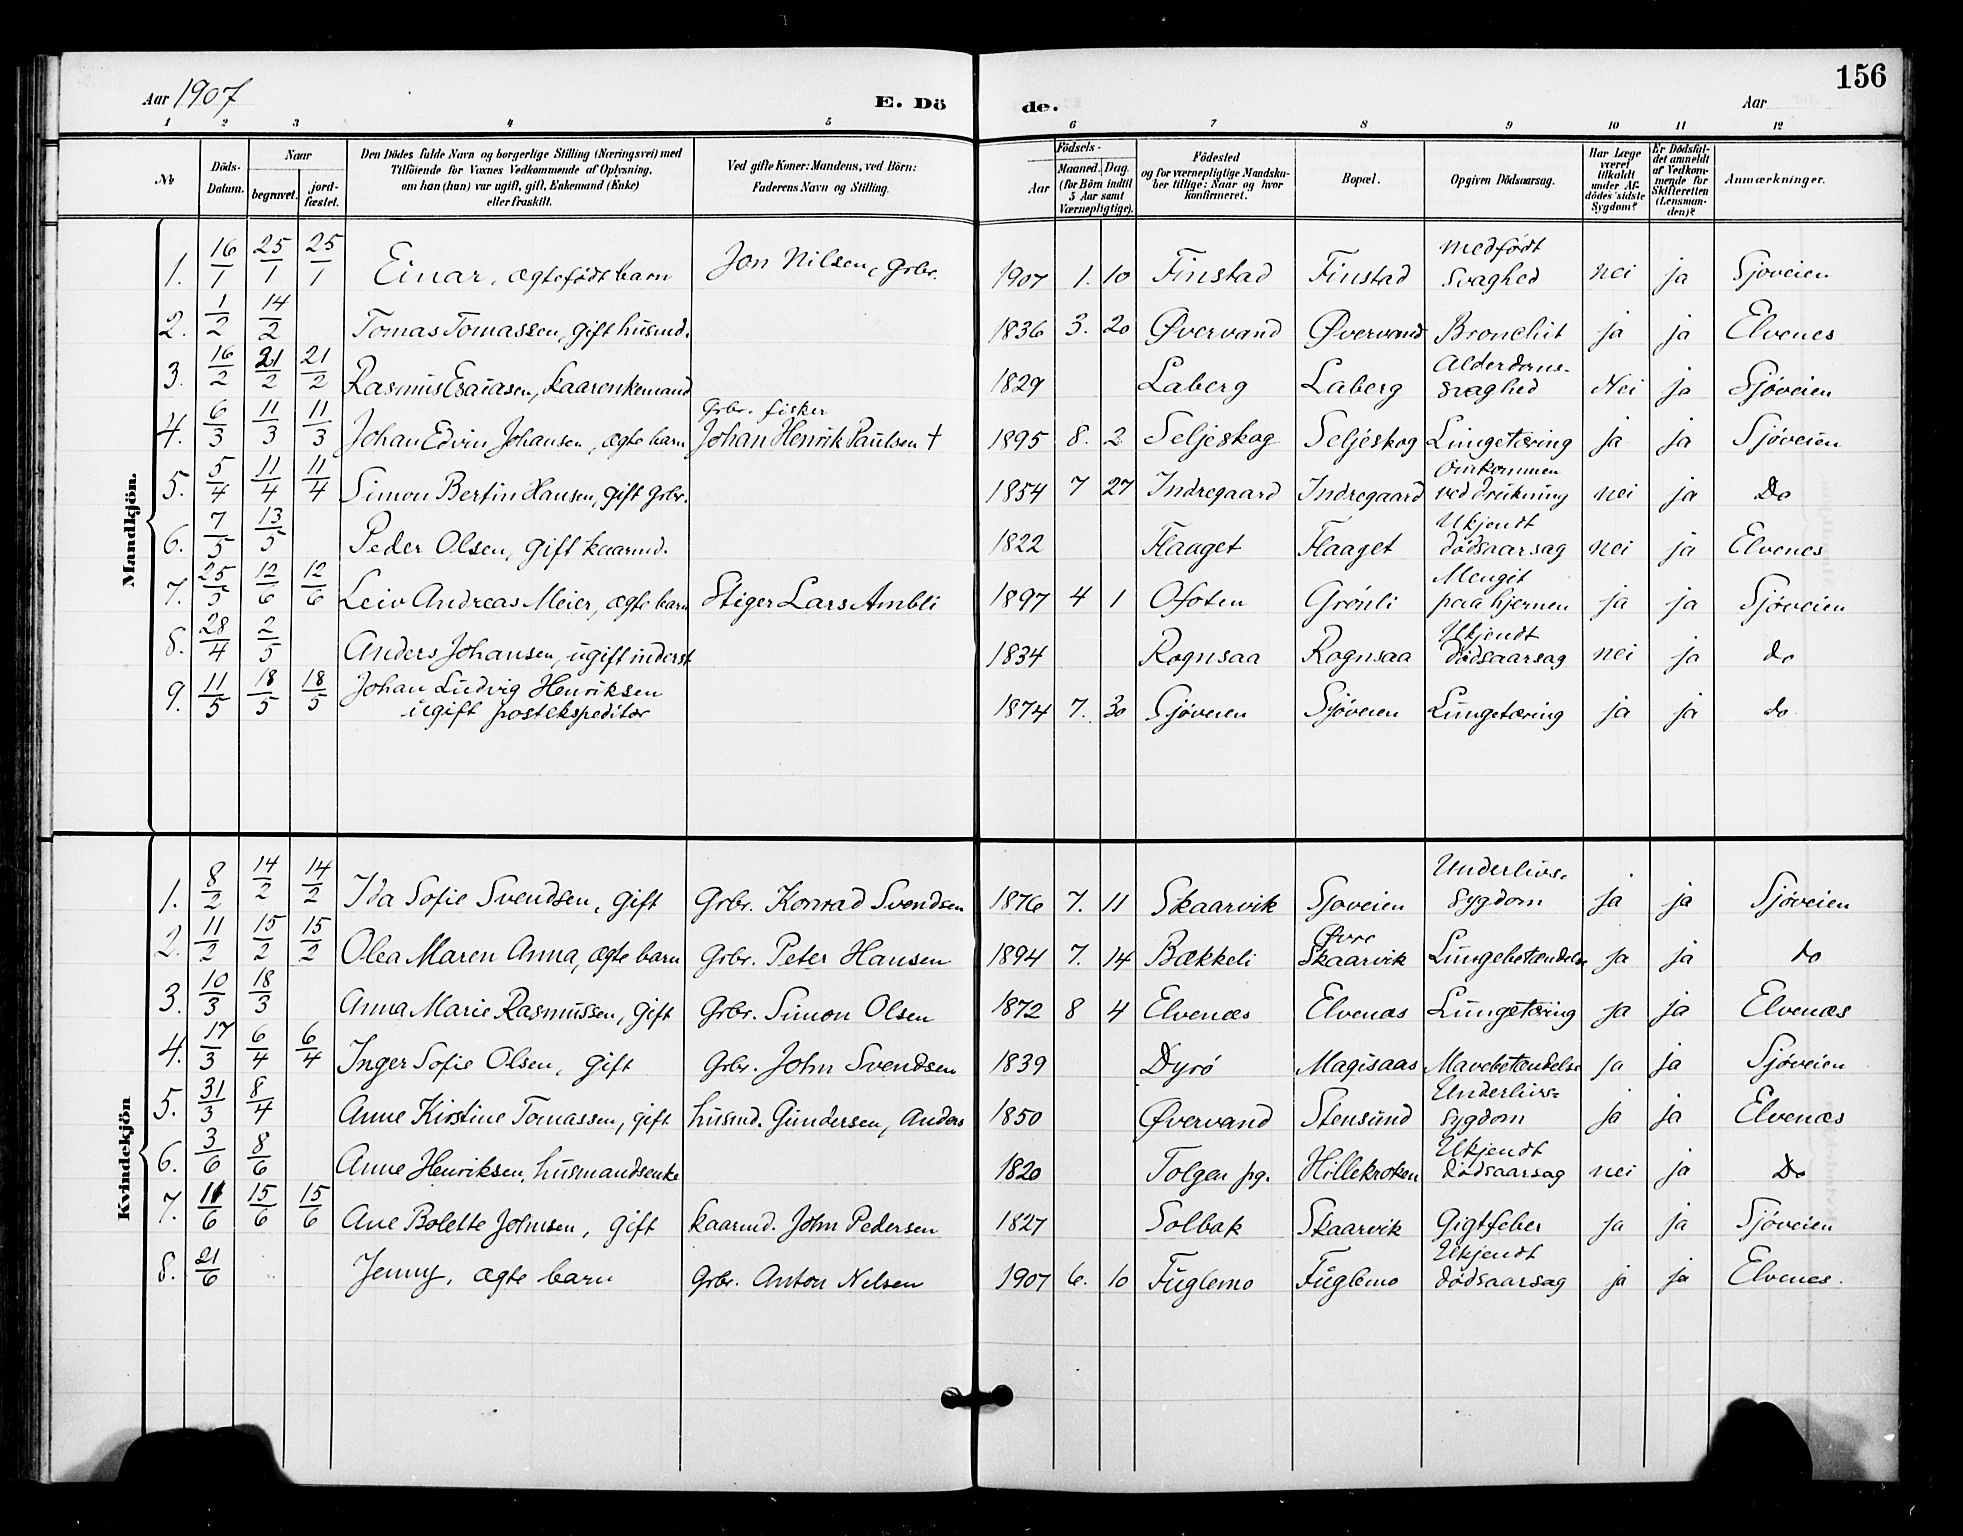 156
Aar 1907 E. Dö de. Aar
1 2 3 4 5 6 7 8 9 10 11 12
№ Döds-Datum. Naar begravet. jord-fæstet. Den Dödes fulde Navn og borgerlige Stilling (Næringsvei) med Tilföiende for Voxnes Vedkommende af Oplysning, om han (hun) var ugift, gift, Enkemand (Enke) eller fraskilt. Ved gifte Koner: Mandens, ved Börn: Faderens Navn og Stilling. Födsels- Aar Maaned. Dag. (for Börn indtil 5 Aar samt Værnepligtige). Födested og for værnepligtige Mandskaber tillige: Naar og hvor konfirmeret. Bopæl. Opgiven Dödsaarsag. Har Læge været tilkaldt under Afdödes sidste Sygdom? Er Dödsfaldet anmeldt af Vedkommende for Skifteretten (Lensmanden)? Anmærkninger.
Mandkjön.
1. 16/1 25/1 25/1 Einar, ægtefødt barn Jon Nilsen, Grbr. 1907 1. 10 Finstad Finstad medfødt Svaghed nei ja Sjøveien
2. 1/2 14/2 Tomas Tomassen, gift husmd. 1836 3. 20 Øvervand Øvervand Bronchit ja ja Elvenes
3. 16/2 21/2 21/2 Rasmus Esaiasen, kaarenkemand 1829 Laberg Laberg Alderdoms-svaghed Nei ja Sjøveien
4. 6/3 11/3 11/3 Johan Edvin Johansen, ægte barn Grbr. fisker Johan Henrik Paulsen † 1895 8. 2 Seljeskog Seljeskog Lungetæring ja ja Sjøveien
5. 5/4 11/4 11/4 Simon Bertin Hansen, gift Grbr. 1854 7 27 Indregaard Indregaard Omkommen ved drukning nei ja Do
6. 7/5 13/5 Peder Olsen, gift kaarmd. 1822 Flaaget Flaaget Ukjendt dødsaarsag nei ja Elvenes
7. 25/5 12/6 12/6 Leiv Andreas Meier, ægte barn Stiger Lars Ambli 1897 4 1 Ofoten Grönli Mengit paa hjernen ja ja Sjøveien
8. 28/4 2/5 Anders Johansen, ugift inderst 1834 Rognsaa Rognsaa Ukjendt dødsaarsag nei ja do
9. 11/5 18/5 18/5 Johan Ludvig Henriksen ugift postekspeditør 1874 7. 30 Sjøveien Sjøveien Lungetæring ja ja do
Kvindekjön
1. 8/2 14/2 14/2 Ida Sofie Svendsen, gift Grbr. Konrad Svendsen 1876 7. 11 Skaarvik Sjøveien Underlivs-sygdom ja ja Sjøveien
2. 11/2 15/2 15/2 Olea Maren Anna, ægte barn Grbr. Peter Hansen 1894 7. 14 Bækkeli Øvre Skaarvik Lungebetændelse ja ja do
3. 10/3 18/3 Anna Marie Rasmussen, gift Grbr. Simon Olsen 1872 8 4 Elvenæs Elvenæs Lungetæring ja ja Elvenæs
4. 17/3 6/4 6/4 Inger Sofie Olsen, gift Grbr. John Svendsen 1839 Dyrö Magisaas Mavebetændelse ja ja Sjøveien
5. 31/3 8/4 Anne Kirstine Tomassen, gift husmd. Gundersen, Anders 1850 Øvervand Stensund Underlivs-sygdom ja ja Elvenæs
6. 3/6 8/6 Anne Henriksen, husmandsenke 1820 Tolgen pg. Hillekroken Ukjendt dødsaarsag nei ja Do
7. 11/6 15/6 15/6 Ane Bolette Johnsen, gift kaarmd. John Pedersen 1827 Solbak Skaarvik Gigtfeber ja ja Sjøveien
8. 21/6 Jenny, ægte barn Grbr. Anton Nilsen 1907 6. 10 Fuglemo Fuglemo Ukjendt dødsaarsag ja ja Elvenes.